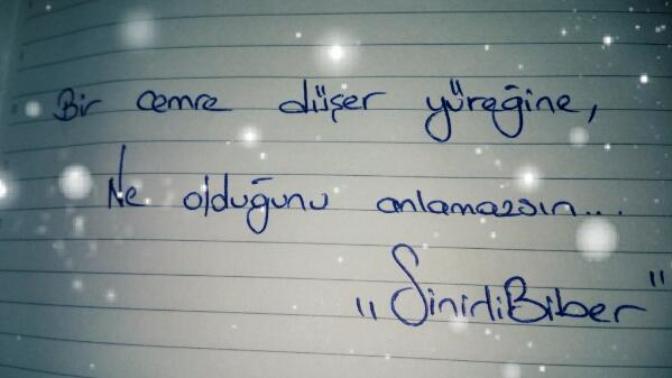 Bir cemre düşer yüreğine,
Ne olduğunu anlamazsın...
"SinirliBiber"